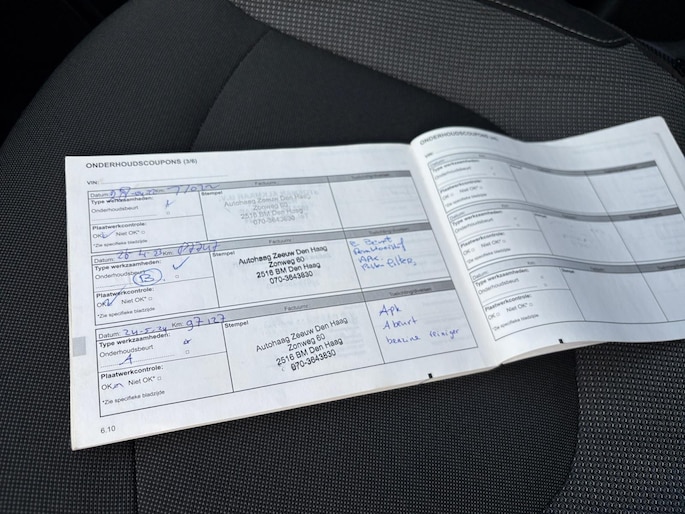 ONDERHOUDSCOUPONS (3/6)
VIN:
Datum: Km:
Factuurnr. Stempel
Type werkzaamheden:
Onderhoudsbeurt
Autohaag Zeeuw Den Haag
Zonweg 60
2516 BM Den Haag
070-3643830
Plaatwerkcontrole:
OK Niet OK*
*Zie specifieke bladzijde
Datum: 26-4-23 Km:
Factuurnr. Stempel
Type werkzaamheden:
Onderhoudsbeurt
B
Autohaag Zeeuw Den Haag
Zonweg 60
2516 BM Den Haag
070-3643830
B Beurt
APK
Filter
Plaatwerkcontrole:
OK Niet OK*
*Zie specifieke bladzijde
Datum: 24-5-24 Km: 97127
Factuurnr. Stempel
Type werkzaamheden:
Onderhoudsbeurt
A
Autohaag Zeeuw Den Haag
Zonweg 60
2516 BM Den Haag
070-3643830
Apk
A beurt
benzine reiniger
Plaatwerkcontrole:
OK Niet OK*
*Zie specifieke bladzijde
6.10
ONDERHOUDSCOUPONS
VIN:
Type werkzaamheden:
Onderhoudsbeurt
Plaatwerkcontrole:
OK Niet OK*
*Zie specifieke bladzijde
Type werkzaamheden:
Onderhoudsbeurt
Plaatwerkcontrole:
OK Niet OK*
*Zie specifieke bladzijde
Type werkzaamheden:
Onderhoudsbeurt
Plaatwerkcontrole:
OK Niet OK*
*Zie specifieke bladzijde